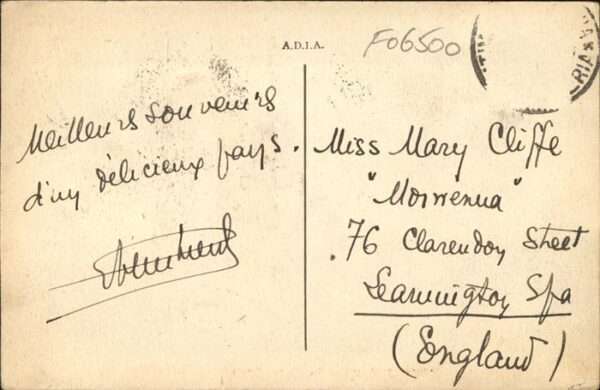 A.D.I.A.
F06500
Meilleurs souvenirs
d'un délicieux pays.
Miss Mary Cliffe
"Morwenna"
76 Clarendon Street
Leamington Spa
(England)